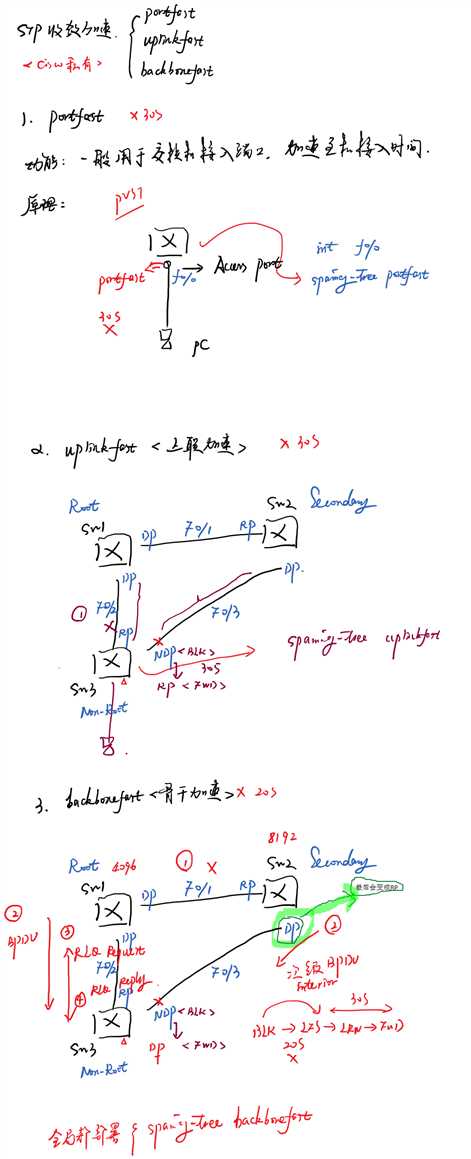 STP 收敛加速.
portfast
uplinkfast
backbonefast
<Cisco私有>
1. portfast × 30S
功能: 一般用于交换机接入端口, 加速主机接入时间.
原理:
PVST
portfast
f0/0
Access port
int f0/0
30S
×
PC
2. uplinkfast <上联加速> × 30S
Root
SW1
DP
70/1
RP
SW2
Secondary
DP
DP.
①
70/2
×
RP
70/3
×
NDP <BLK>
30S
RP <FWD>
SW3
Non-Root
3. backbonefast <骨干加速> × 20S
Root 4096
SW1
① ×
8192
SW2
Secondary
DP
70/1
RP
最后会变成RP
DP
②
BPDU
③
RLQ Request
70/2
④
RLQ Reply
RP
70/3
②
次级BPDU
Inferior
30S
BLK → LIS → LRN → FWD
20S
×
×
NDP <BLK>
DP <FWD>
SW3
Non-Root
全局都部署
backbonefast